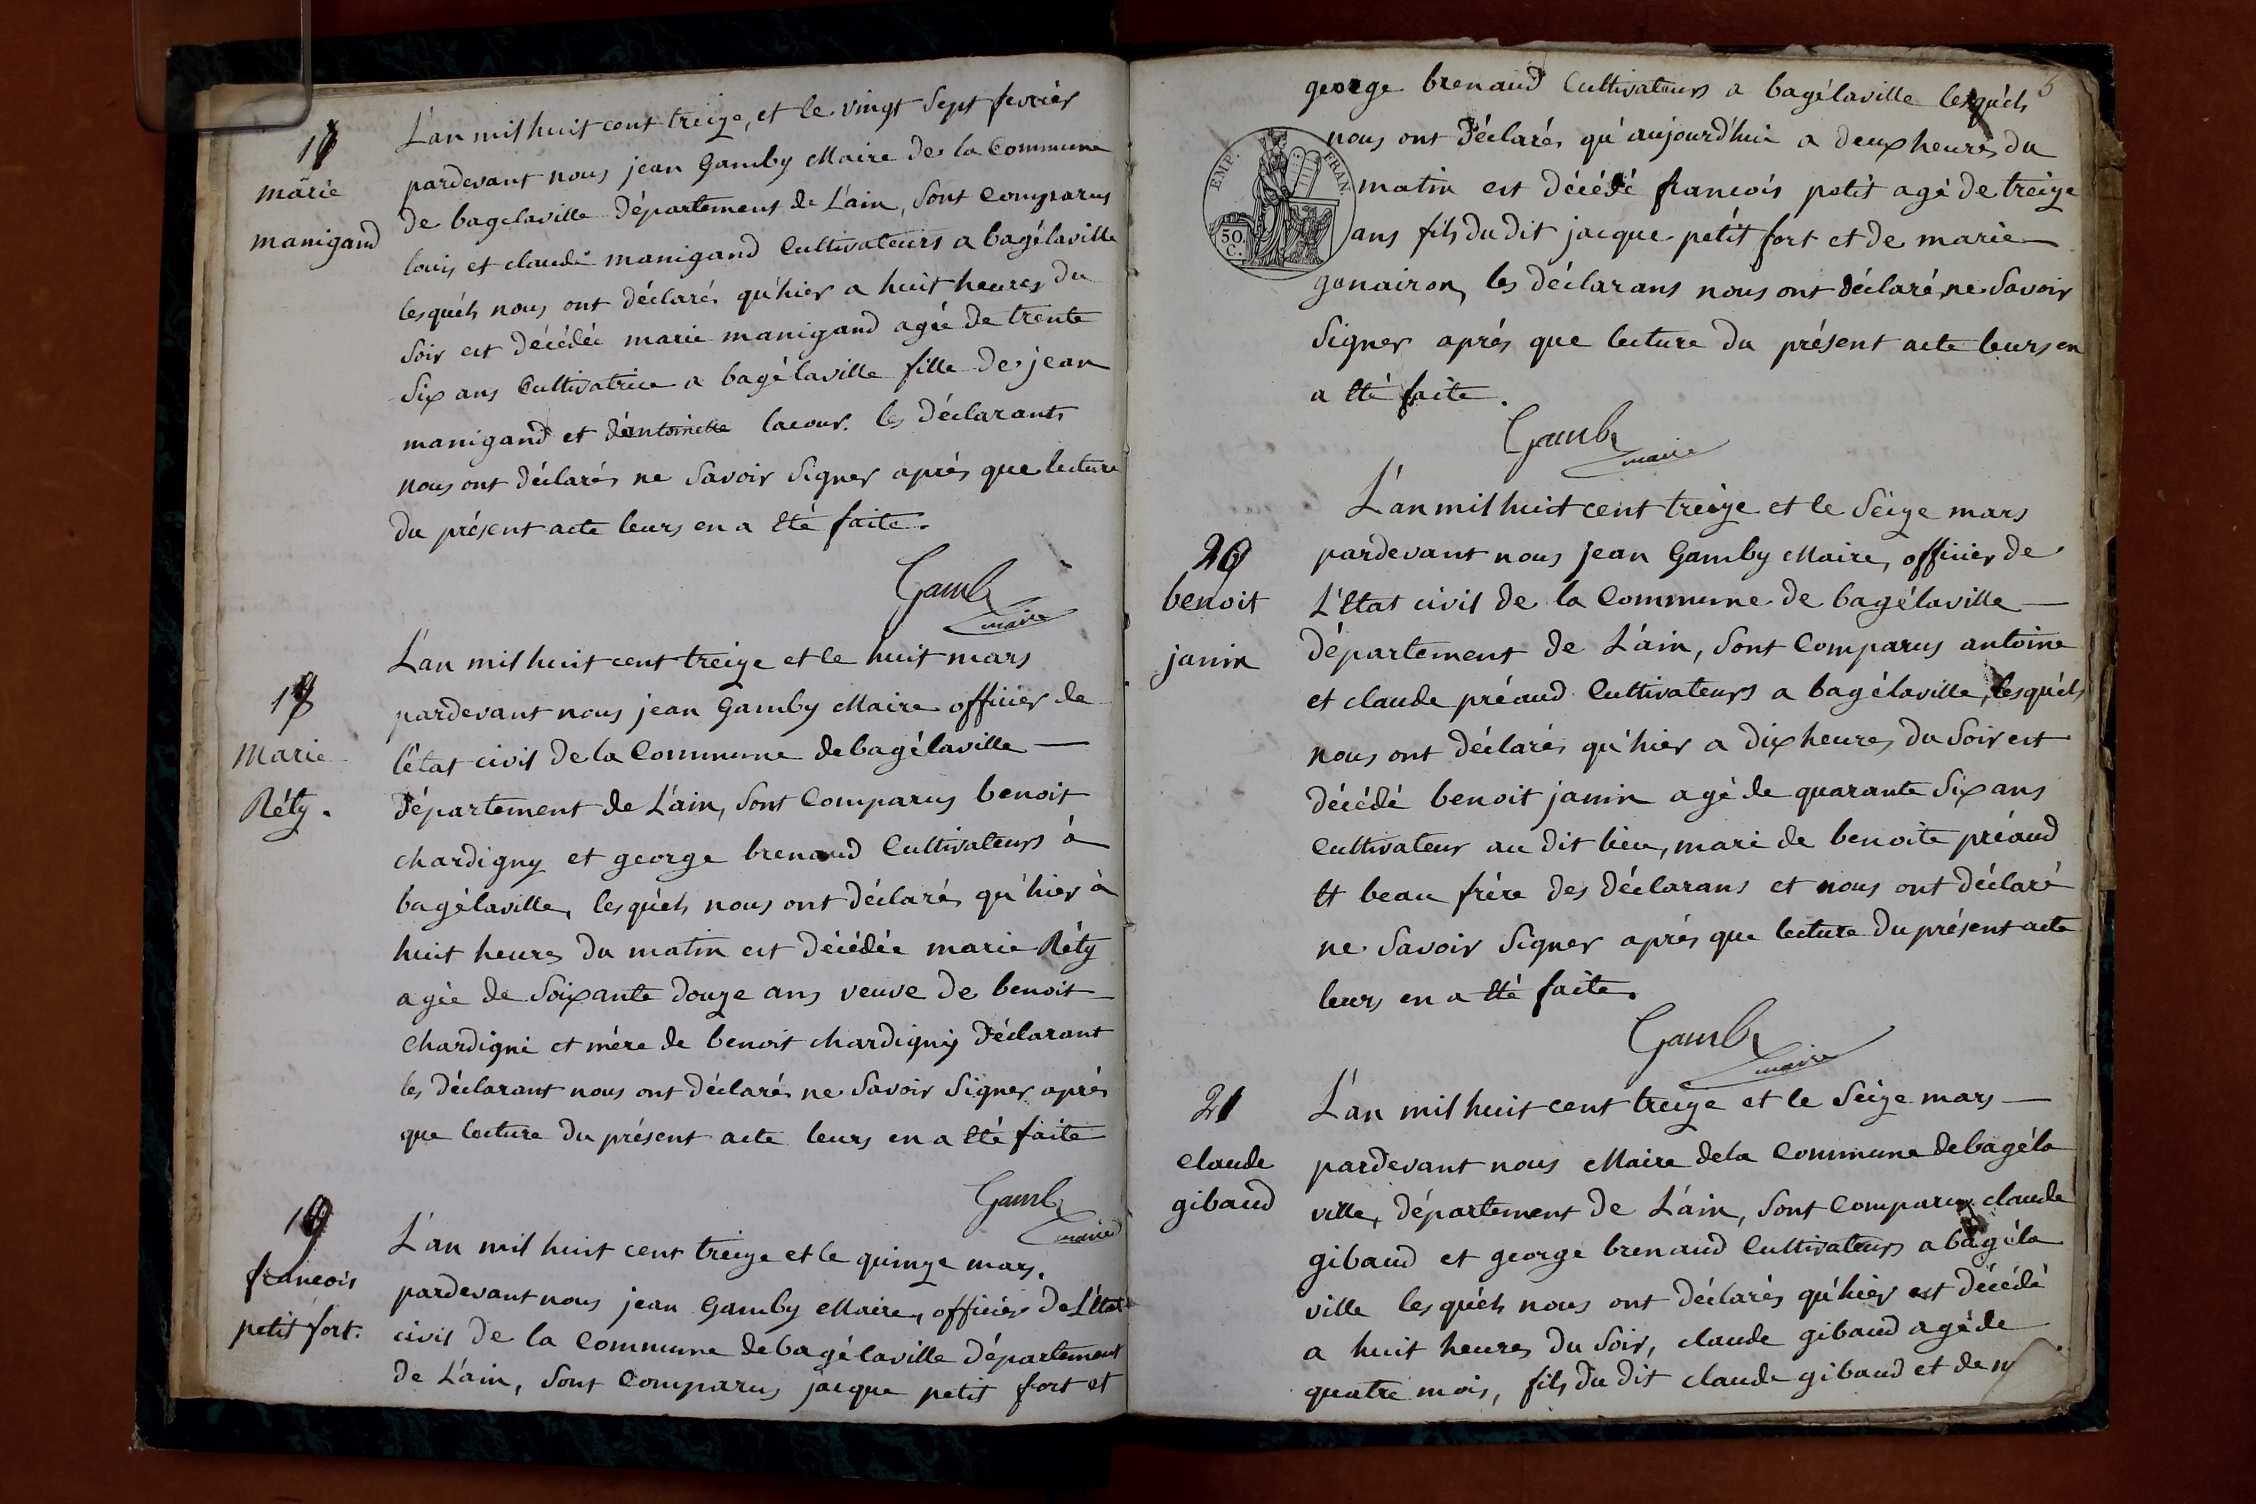 17
marie
manigand
L'an mil huit cent treize, et le vingt sept fevrier
pardevant nous jean Gamby Maire de la Commune
de bagelaville département de L'ain, sont Comparus
louis et claude manigand Cultivateurs a bagélaville
lesquéls nous ont déclarés qu'hier a huit heures du
soir est décédée marie manigand agée de trente
six ans Cultivatrice a bagélaville fille de jean
manigand et d'antoinette lacour. les déclarants
nous ont déclarés ne savoir signer après que lecture
du présent acte leurs en a été faite.
Gamby
maire
18
Marie
Réty.
L'an mil huit cent treize et le huit mars
pardevant nous jean Gamby Maire officier de
l'état civil de la Commune de bagélaville —
département de L'ain, sont Comparus benoit
chardigny et george brenaud Cultivateurs à
bagélaville, lesquéls nous ont déclarés qu'hier à
huit heures du matin est décédée marie Réty
agée de soixante douze ans veuve de benoit —
Chardigni et mére de benoit chardigny déclarant
les déclarant nous ont déclarés ne savoir signer aprés
que lecture du présent acte leurs en a été faite
Gamby
maire
19
francois
petit fort.
L'an mil huit cent treize et le quinze mars.
pardevant nous jean Gamby Maire, officier de L'état
civil de la Commune de bagélaville département
de L'ain, sont Comparus jacque petit fort et
6
george brenaud Cultivateurs a bagélaville lesquéls
nous ont déclarés qu'aujourd'hui a deux heures du
matin est décédé francois petit agé de treize
ans fils du dit jacque petit fort et de marie —
gonairon, les déclarans nous ont déclaré ne savoir
signer aprés que lecture du présent acte leurs en
a été faite.
EMP. FRAN.
50.
C.
Gamby
maire
20
benoit
janin
L'an mil huit cent treize et le seize mars
pardevant nous jean Gamby Maire, officier de
L'état civil de la Commune de bagélaville —
département de L'ain, sont Comparus antoine
et claude préaud Cultivateurs a bagélaville, lesquéls
nous ont déclarés qu'hier a dix heures du soir est
décédé benoit janin agé de quarante six ans
Cultivateur au dit lieu, mari de benoite préaud
et beau frére des déclarans et nous ont déclaré
ne savoir signer aprés que lecture du présent acte
leurs en a été faite.
Gamby
maire
21
claude
gibaud
L'an mil huit cent treize et le seize mars —
pardevant nous Maire de la Commune de bagéla
ville, département de L'ain, sont Comparus claude
gibaud et george brenaud Cultivateurs a bagéla
ville lesquéls nous ont déclarés qu'hier est décédé
a huit heures du soir, claude gibaud agé de
quatre mois, fils du dit claude gibaud et de